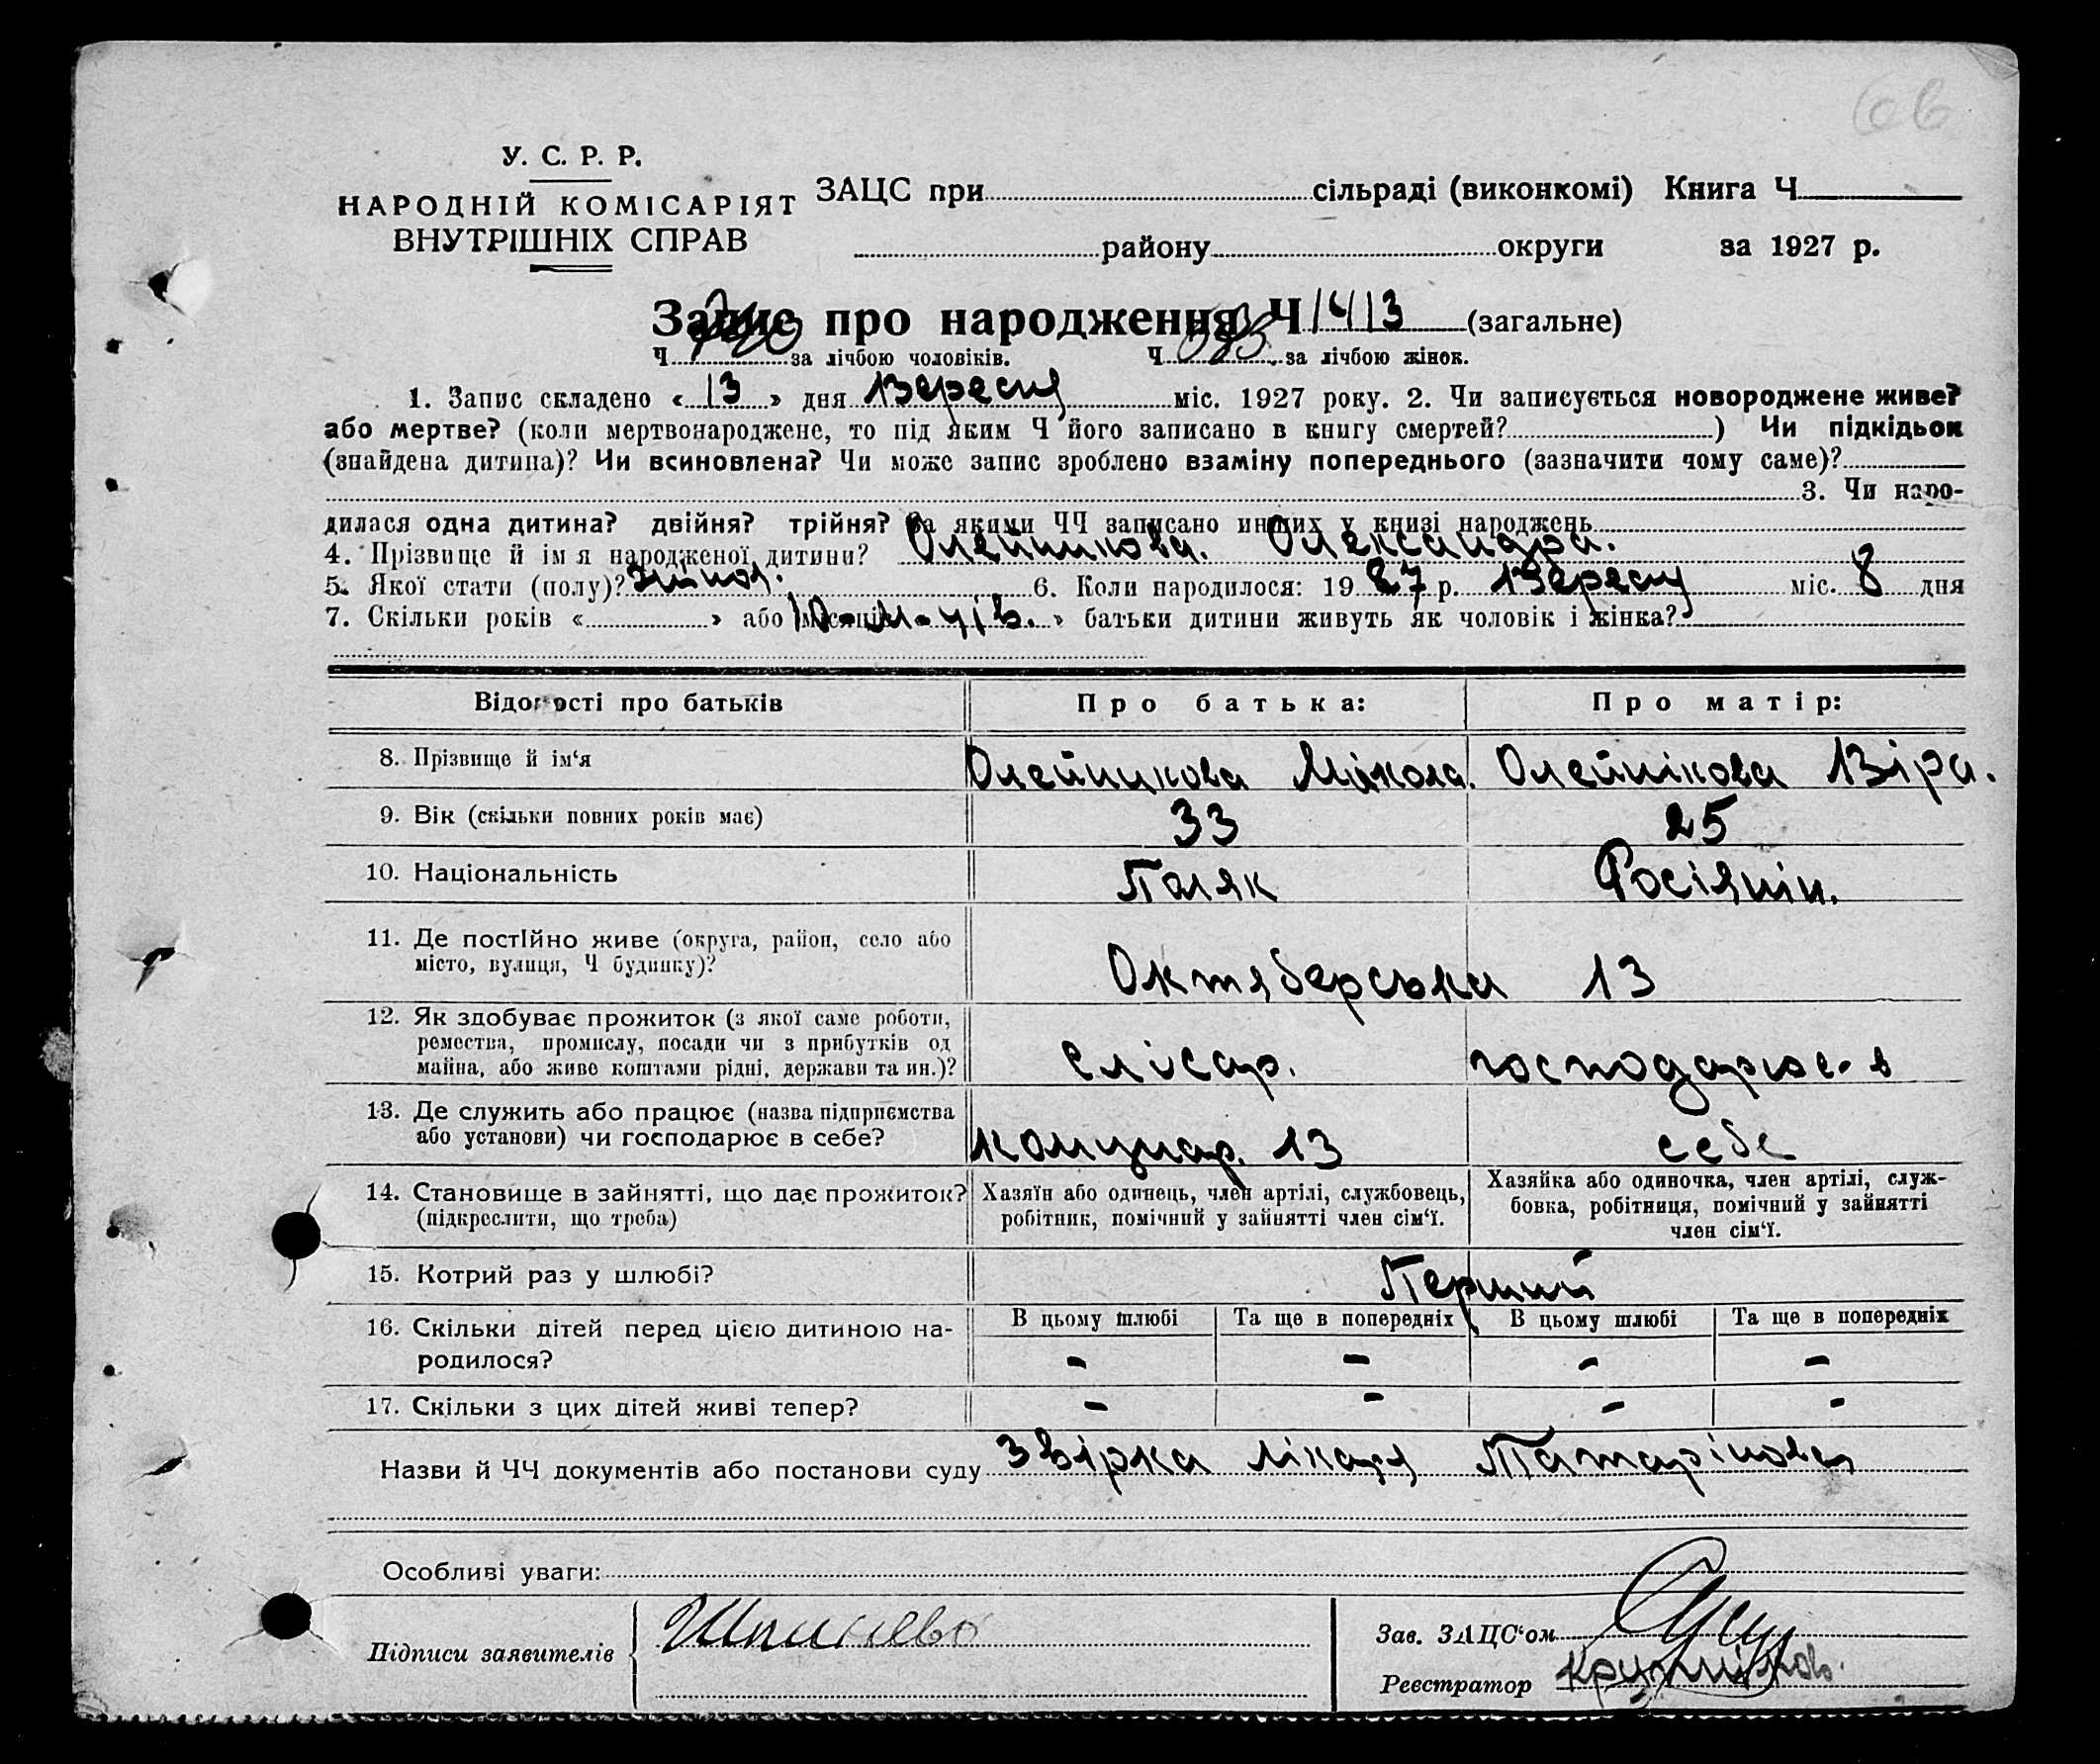 66
У. С. Р. Р.
НАРОДНІЙ КОМІСАРІЯТ
ВНУТРІШНІХ СПРАВ
ЗАЦС при сільраді (виконкомі) Книга Ч
району округи за 1927 р.
Запис про народження Ч 1413 (загальне)
Ч за лічбою чоловіків. Ч за лічбою жінок.
1. Запис складено « 13 » дня Вересня міс. 1927 року. 2. Чи записується новороджене живе?
або мертве? (коли мертвонароджене, то під яким Ч його записано в книгу смертей? ) Чи підкідьок
(знайдена дитина)? Чи всиновлена? Чи може запис зроблено взаміну попереднього (зазначити чому саме)?
3. Чи наро-
дилася одна дитина? двійня? трійня? За якими ЧЧ записано инших у книзі народжень
4. Прізвище й ім я народженої дитини? Олейникова. Олександра.
5. Якої стати (полу)? жіноч. 6. Коли народилося: 19 27 р. Вересня міс. 8 дня
7. Скільки років « » або місяців » батьки дитини живуть як чоловік і жінка?
Відомості про батьків Про батька: Про матір:
8. Прізвище й ім‘я Олейникова Мікола. Олейнікова Віра.
9. Вік (скільки повних років має) 33 25
10. Національність Поляк Росіянін.
11. Де постІйно живе (округа, район, село або
місто, вулиця, Ч будинку)? Октяберська 13
12. Як здобуває прожиток (з якої саме роботи,
ремества, промислу, посади чи з прибутків од
майна, або живе коштами рідні, держави та ин.)? слісар. господарює в
13. Де служить або працює (назва підприємства
або установи) чи господарює в себе? комунар. 13 себе
14. Становище в зайнятті, що дає прожиток?
(підкреслити, що треба)
Хазяїн або одинець, член артілі, службовець,
робітник, помічний у зайнятті член сім‘ї.
Хазяйка або одиночка, член артілі, служ-
бовка, робітниця, помічний у зайнятті
член сім‘ї.
15. Котрий раз у шлюбі? Перший
16. Скільки дітей перед цією дитиною на-
родилося?
В цьому шлюбі Та ще в попередніх В цьому шлюбі Та ще в попередніх
- - - -
17. Скільки з цих дітей живі тепер? - - - -
Назви й ЧЧ документів або постанови суду Звірка лікаря Татарінова
Особливі уваги:
Підписи заявителів
Зав. ЗАЦС‘ом
Реєстратор